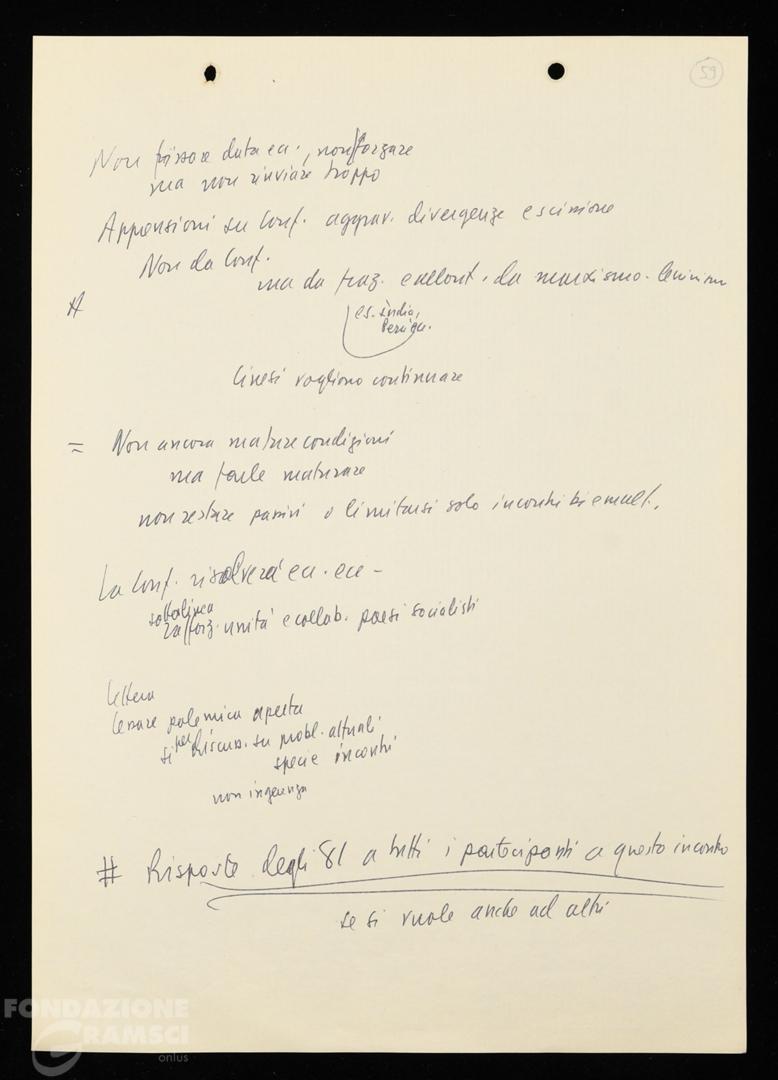 59
Non fissare data ecc., non forzare
ma non rinviare troppo
Apprensioni su Conf. aggrav. divergenze e scissione
Non da Conf.
ma da fraz. e allont. da marxismo-leninismo
A
es. India,
Cinesi vogliono continuare
= Non ancora mature condizioni
ma farle maturare
non restare passivi o limitarsi solo incontri bi e mult.
La Conf. risolverà ecc. ecc -
sottolinea
rafforz. unità e collab. paesi socialisti
Lettera
Cessare polemica aperta
si per discuss. su probl. attuali
specie incontri
non ingerenza
# Risposte degli 81 a tutti i partecipanti a questo incontro
se si vuole anche ad altri
FONDAZIONE
GRAMSCI
onlus